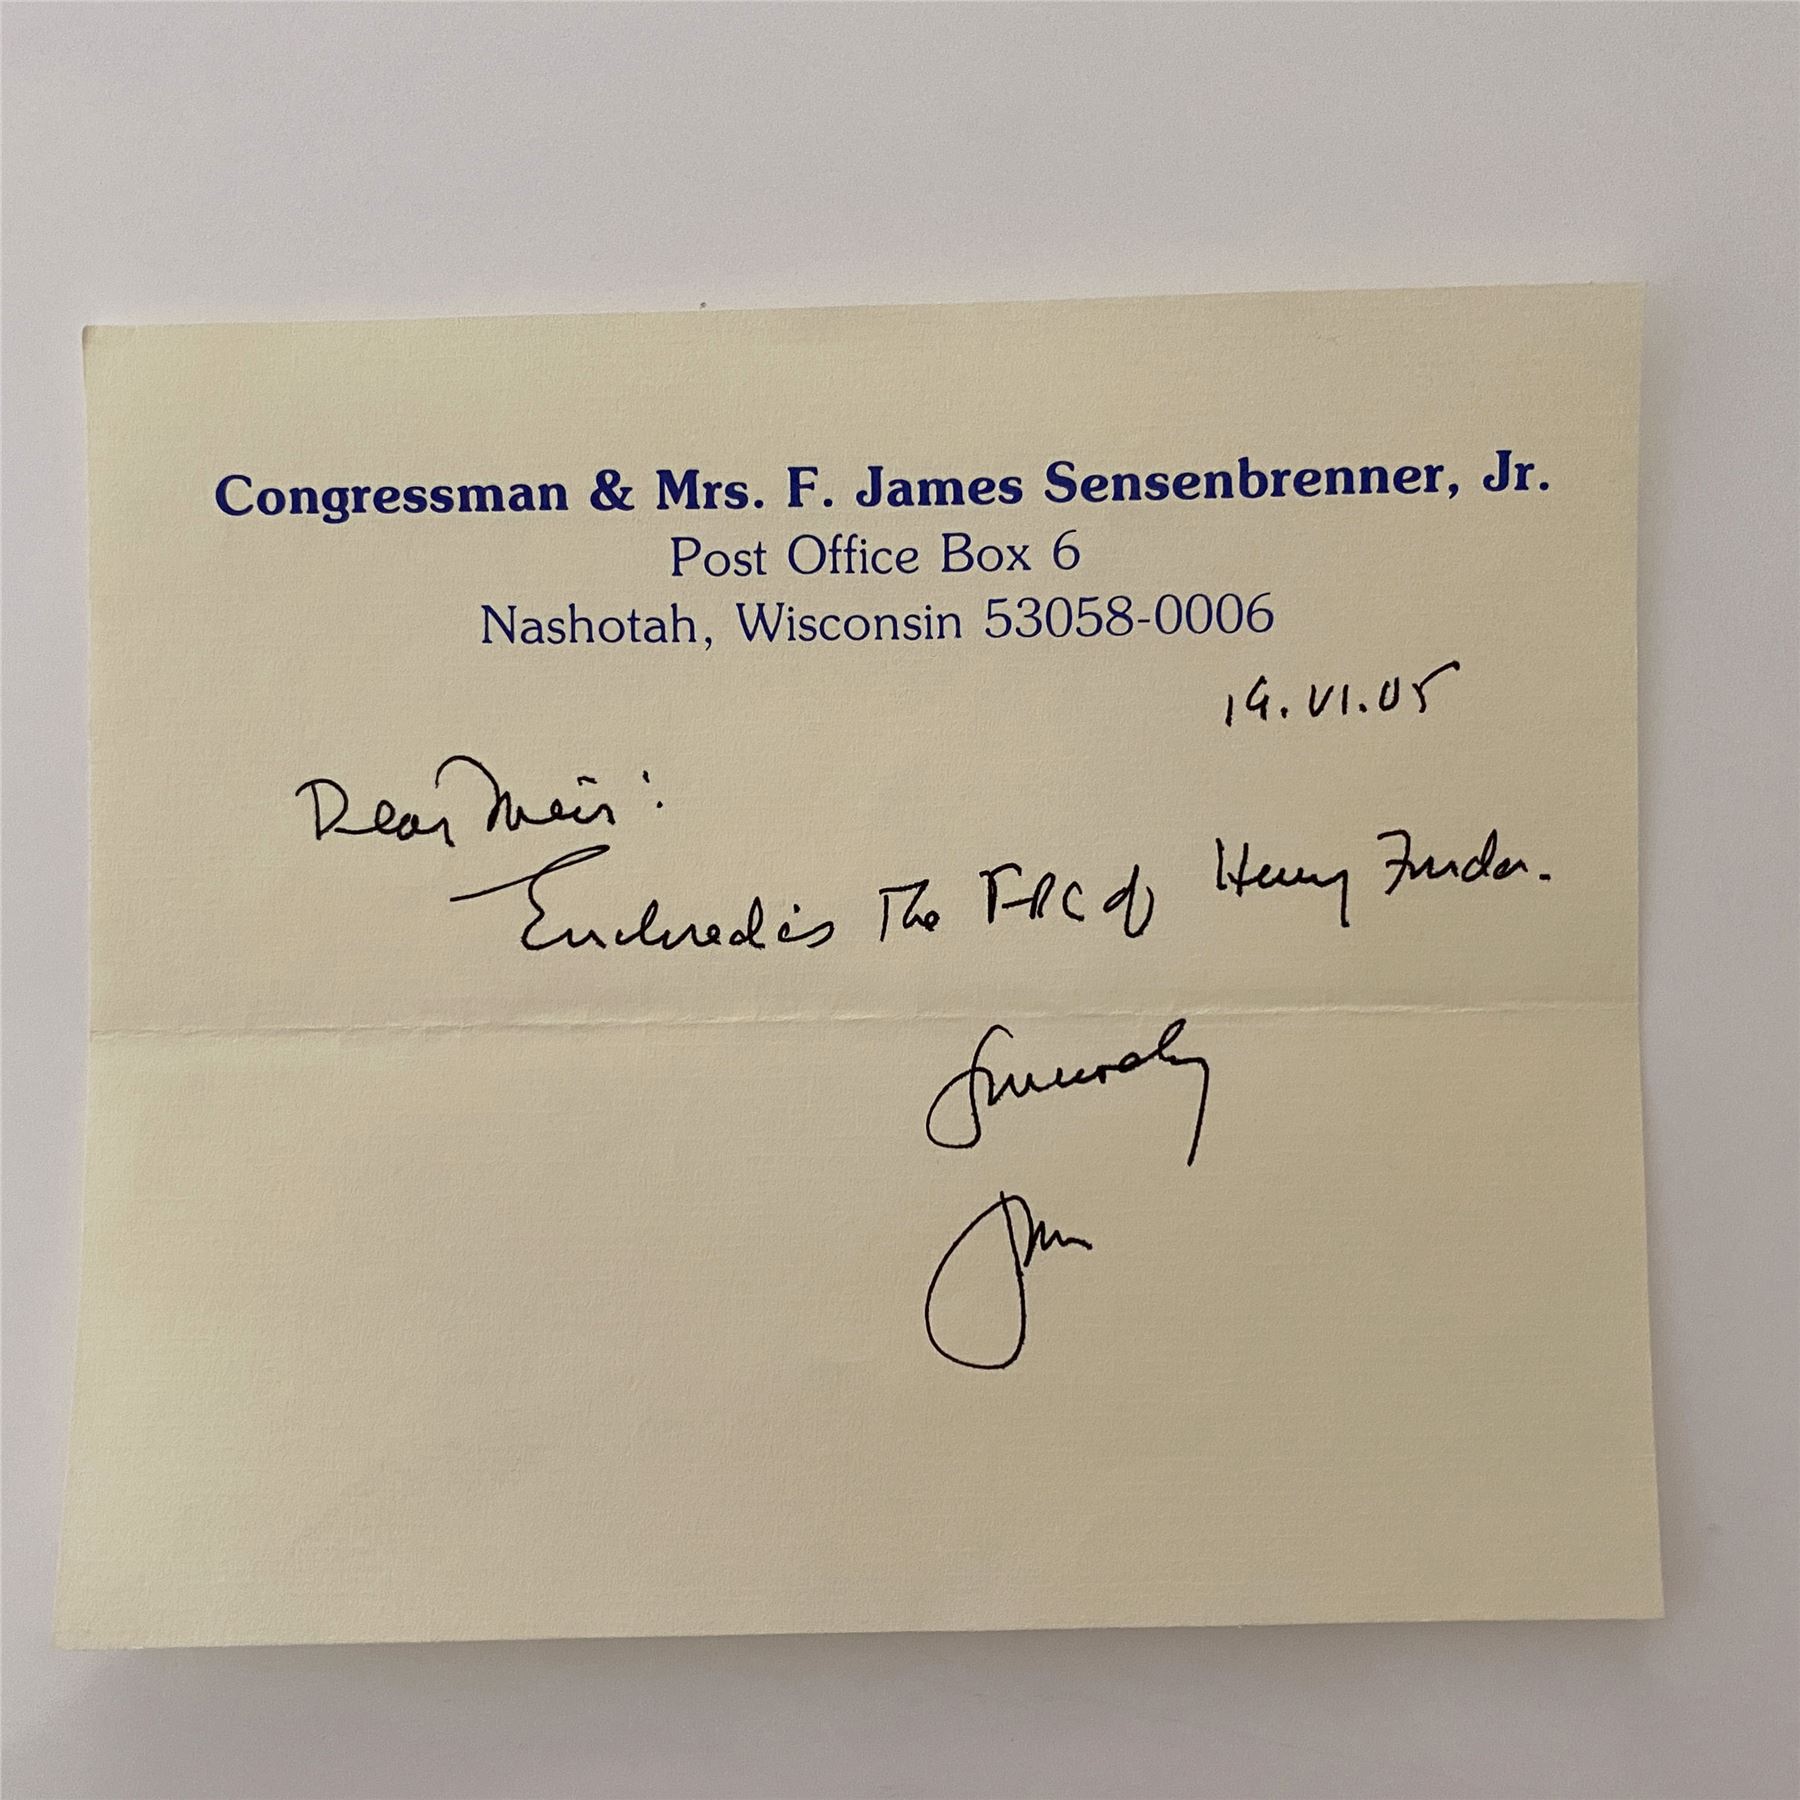 Congressman & Mrs. F. James Sensenbrenner, Jr.
Post Office Box 6
Nashotah, Wisconsin 53058-0006
19.VI.05
Dear Meir:
Enclosed is The of Henry
Sincerely
Jim